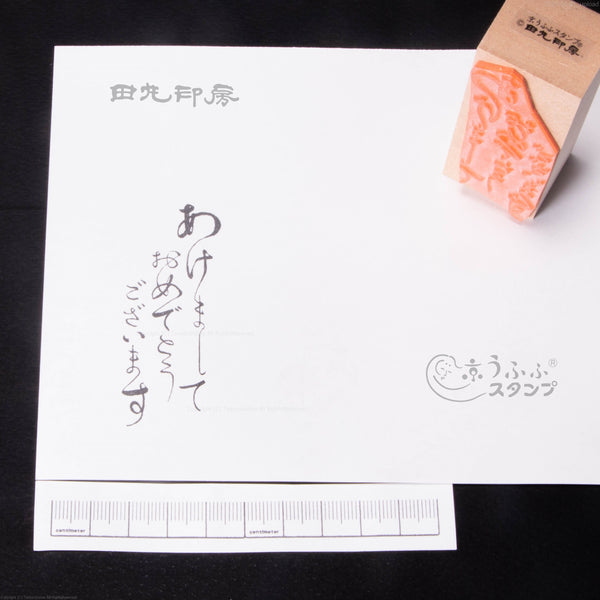 京うふふスタンプ®
©田丸印房
田丸印房
あけまして
おめでとう
ございます
京うふふ®
スタンプ
centimeter
centimeter